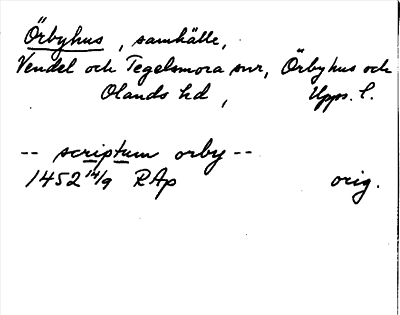 Örbyhus, samhälle,
Vendel och Tegelsmora snr, Örbyhus och
Olands hd, Upps. l.
-- scriptum orby --
1452 14/9 RAp orig.